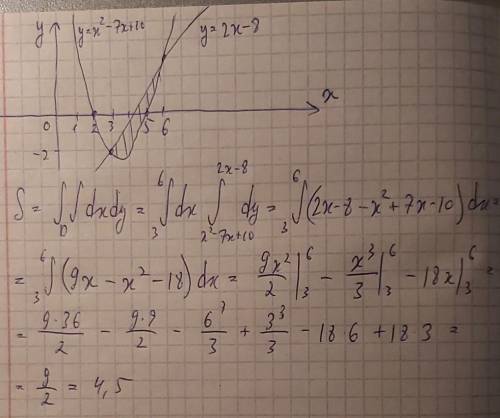 y
y=x²-7x+10
y=2x-8
x
0 1 2 3 5 6
-2
S = ∫∫_D dxdy = ₃∫⁶ dx ∫_{x²-7x+10}^{2x-8} dy = ₃∫⁶ (2x-8-x²+7x-10) dx =
= ₃∫⁶ (9x - x² - 18) dx = 9x²/2 |₃⁶ - x³/3 |₃⁶ - 18x |₃⁶ =
= 9·36/2 - 9·9/2 - 6³/3 + 3³/3 - 18 6 + 18 3 =
= 9/2 = 4,5